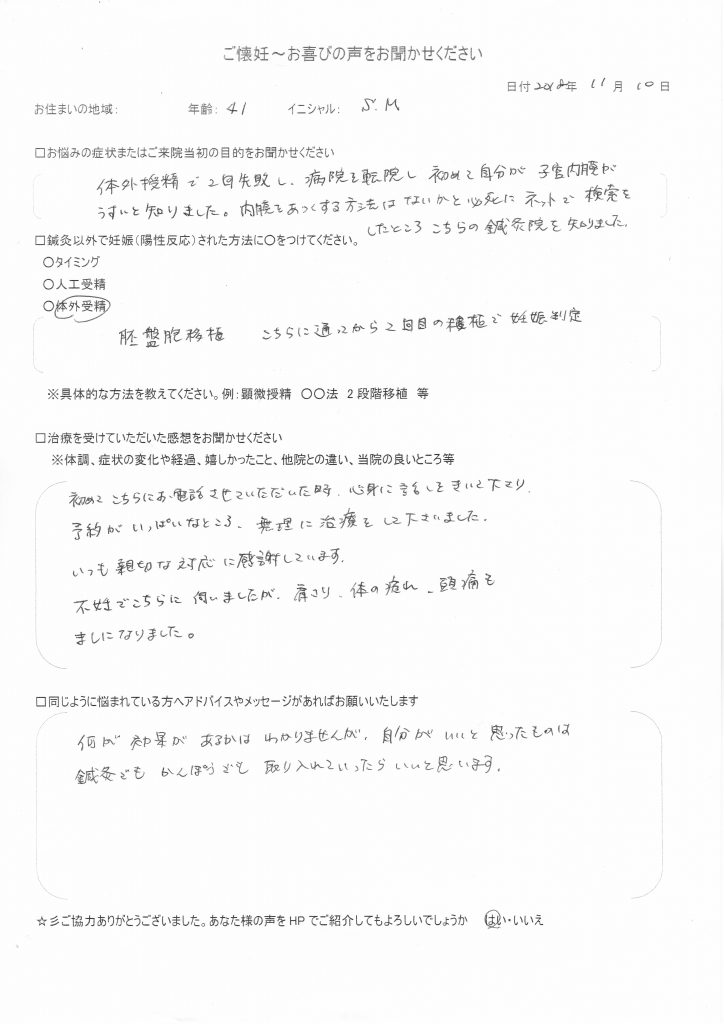 ご懐妊～お喜びの声をお聞かせください
日付2018年 11月 10日
お住まいの地域: 年齢: 41 イニシャル: S.M
□お悩みの症状またはご来院当初の目的をお聞かせください
体外授精で2回失敗し、病院を転院し 初めて自分が 子宮内膜が
うすいと知りました。内膜をあつくする方法はないかと必死に ネットで 検索を
したところ こちらの鍼灸院を知りました。
□鍼灸以外で妊娠(陽性反応)された方法に〇をつけてください。
〇タイミング
〇人工受精
〇体外受精
胚盤胞移植 こちらに通ってから2回目の移植で 妊娠判定
※具体的な方法を教えてください。例:顕微授精 〇〇法 2段階移植 等
□治療を受けていただいた感想をお聞かせください
※体調、症状の変化や経過、嬉しかったこと、他院との違い、当院の良いところ等
初めてこちらにお電話させていただいた時、心身に話しをきいて下さり、
予約が いっぱいなところ、無理に治療をして下さいました。
いつも 親切な対応に感謝しています。
不妊でこちらに 伺いましたが、肩こり、体の疲れ、頭痛も
ましになりました。
□同じように悩まれている方へアドバイスやメッセージがあればお願いいたします
何が 効果が あるかは わかりませんが、自分が いいと 思ったものは
鍼灸でも かんぽうでも 取り入れていったら いいと思います。
☆彡ご協力ありがとうございました。あなた様の声をHPでご紹介してもよろしいでしょうか はい・いいえ